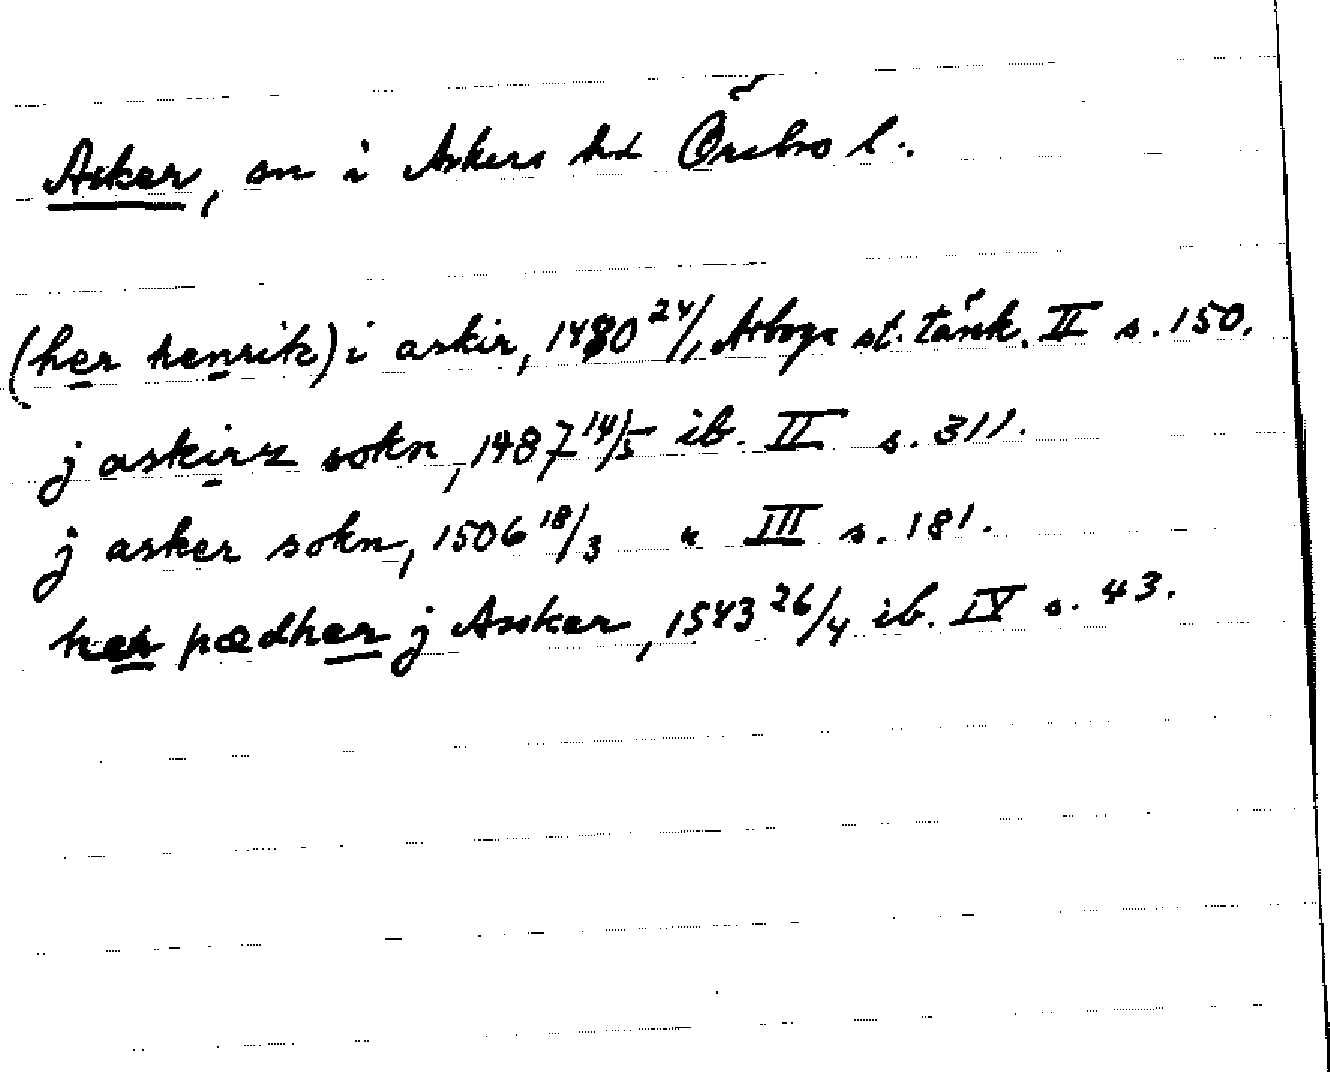 Asker, sn i Askers hd Örebro l.
(her henrik) i askir, 1480 24/1, Arboga st. tänk. II s. 150.
j askirz sokn, 1487 14/5 ib. II s. 311.
j asker sokn, 1506 18/3 " III s. 181.
her pædher j Asker, 1543 26/4 ib. IV s. 43.